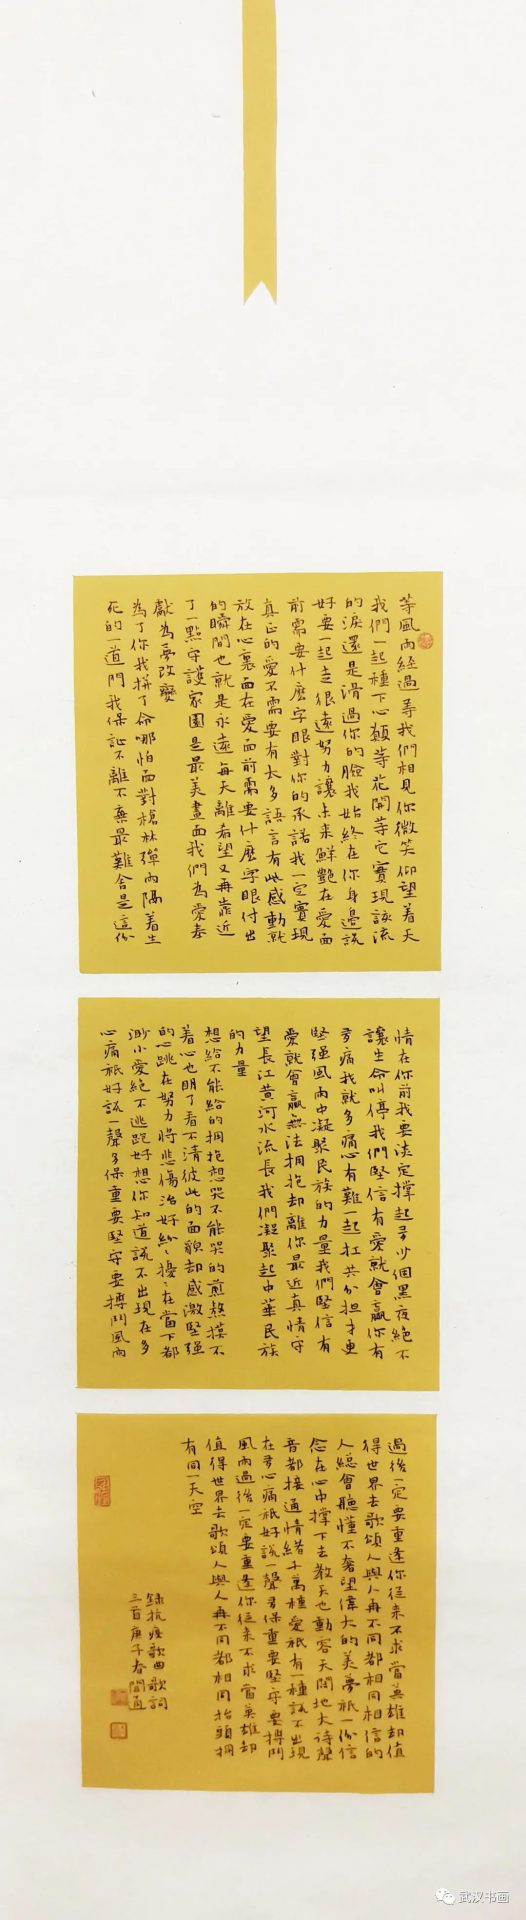 等風雨經過等我們相見你微笑仰望着天
我們一起種下心願等花開等它實現該流
的淚還是滑過你的臉我始終在你身邊說
好要一起走很遠努力讓未來鮮艷在愛面
前需要什麽字眼對你的承諾我一定實現
真正的愛不需要有太多語言有此感動就
放在心裏面在愛面前需要什麽字眼付出
的瞬間也就是永遠每天離希望又再靠近
了一點守護家園是最美畫面我們為愛奉
獻為夢改變
為了你我拼了命哪怕面對槍林彈雨隔着生
死的一道門我保証不離不棄最難舍是這份
情在你前我要淡定撐起多少個黑夜絕不
讓生命叫停我們堅信有愛就會贏你有
多痛我就多痛心有難一起扛共分担才更
堅强風雨中凝聚民族的力量我們堅信有
愛就會贏無法拥抱却離你最近真情守
望長江黄河水流長我們凝聚起中華民族
的力量
想給不能給的拥抱想哭不能哭的煎熬摸不
着心也明了看不清彼此的面貌却感激堅强
的心跳在努力將悲傷治好紛紛擾擾在當下都
渺小愛絕不逃跑好想你知道說不出現在多
心痛衹好說一聲多保重要堅守要搏鬥風雨
過後一定要重逢你從来不求當英雄却值
得世界去歌頌人與人再不同都相同相信的
人總會聽懂不奢望偉大的美夢衹一份信
念在心中撐下去教天也動容天闊地大詩聲
音都接通情緒千萬種愛衹有一種說不出現
在多心痛衹好說一聲多保重要堅守要搏鬥
風雨過後一定要重逢你從来不求當英雄却
值得世界去歌頌人與人再不同都相同抬頭拥
有同一天空
録抗疫歌曲歌詞
三首庚子春間
武汉书画